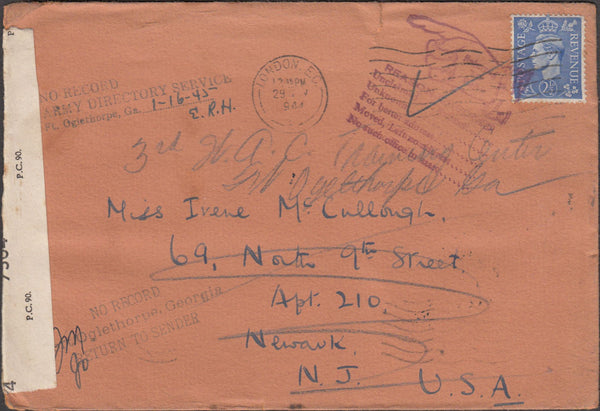 P.C. 90.
P.C. 90.
NO RECORD
ARMY DIRECTORY SERVICE
Ft. Oglethorpe, Ga. 1-16-45
E.R.H.
LONDON. E.C.
12 45 PM
1944
POSTAGE
REVENUE
2½D
Unclaimed
Unknown
For better address
Moved, Left no address
No such office in state
3rd W.A.C. Training Center
Ft. Oglethorpe Ga
Miss Irene McCullough.
69, North 9th Street.
Apt. 210,
Newark,
N.J. U.S.A.
NO RECORD
Oglethorpe, Georgia
RETURN TO SENDER